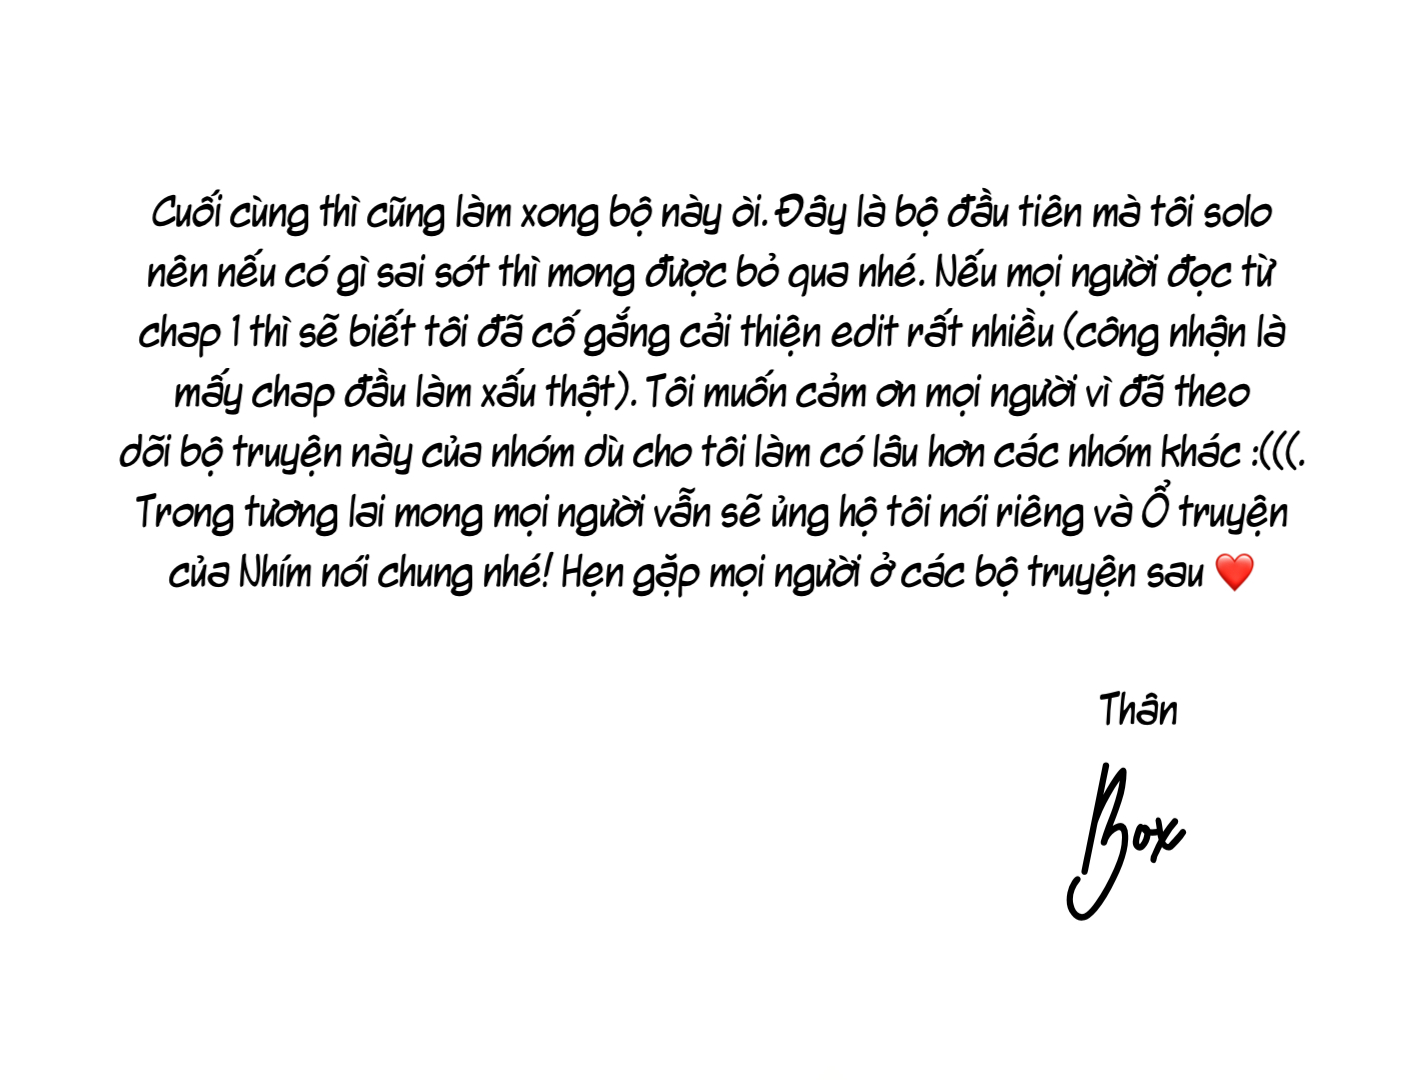 Cuối cùng thì cũng làm xong bộ này òi. Đây là bộ đầu tiên mà tôi solo
nên nếu có gì sai sót thì mong được bỏ qua nhé. Nếu mọi người đọc từ
chap 1 thì sẽ biết tôi đã cố gắng cải thiện edit rất nhiều (công nhận là
mấy chap đầu làm xấu thật). Tôi muốn cảm ơn mọi người vì đã theo
dõi bộ truyện này của nhóm dù cho tôi làm có lâu hơn các nhóm khác :(((.
Trong tương lai mong mọi người vẫn sẽ ủng hộ tôi nói riêng và Ổ truyện
của Nhím nói chung nhé! Hẹn gặp mọi người ở các bộ truyện sau ❤️
Thân
Box